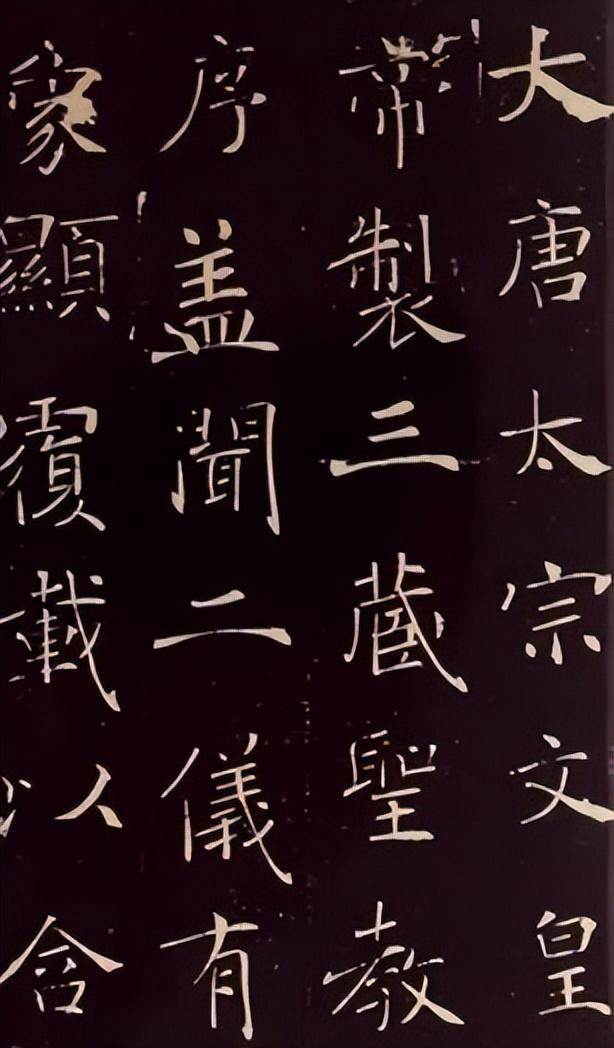 大唐太宗文皇
帝製三蔵聖教
序盖聞二儀有
象顯覆載以含